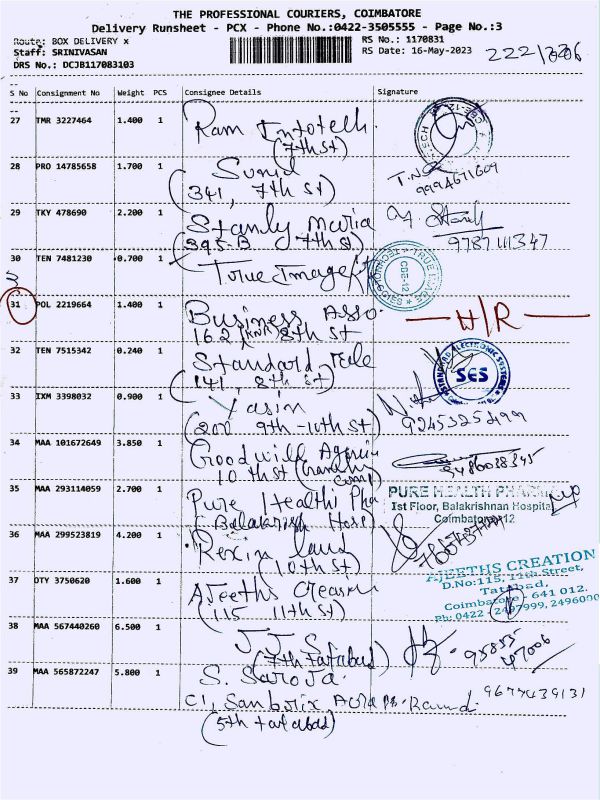 THE PROFESSIONAL COURIERS, COIMBATORE
Delivery Runsheet - PCX - Phone No.:0422-3505555 - Page No.:3
Route: BOX DELIVERY x
RS No.: 1170831
Staff: SRINIVASAN
RS Date: 16-May-2023
DRS No.: DCJB117083103
S No Consignment No Weight PCS Consignee Details Signature
27 TMR 3227464 1.400 1 Ram Infotech
(7th st)
28 PRO 14785658 1.700 1 Sunil
(341, 7th st) 9994671609
29 TKY 478690 2.200 1 Stanly Maria
(395-B 7th st) 9787111347
30 TEN 7481230 0.700 1 True Image
TRUE IMAGE
CBE-12
31 POL 2219664 1.400 1 Business Asso.
162 KNR 8th st
32 TEN 7515342 0.240 1 Standard
(141, 8th st)
STANDARD ELECTRONIC SYSTEMS
SES
33 IXM 3398032 0.900 1 Yasin
(200 9th-10th st) 9245325499
34 MAA 101672649 3.850 1 Goodwill
10th st
35 MAA 293114059 2.700 1 Pure Health Pha
(Balakrish Hose)
PURE HEALTH PHARM
1st Floor, Balakrishnan Hospital
Coimbatore-12
36 MAA 299523819 4.200 1 Rexin land
(10th st)
37 OTY 3750620 1.600 1 Ajeeths Creasin
(115 11th st)
AJEETHS CREATION
D.No:115, 11th Street,
Tatabad,
Coimbatore - 641 012.
Ph: 0422 - 2497999, 2496000
38 MAA 567440260 6.500 1 J J S
(7th tatabad) 95855
47006
39 MAA 565872247 5.800 1 S. Saroja
C1, Sanbrix 9677439131
(5th tatabad)